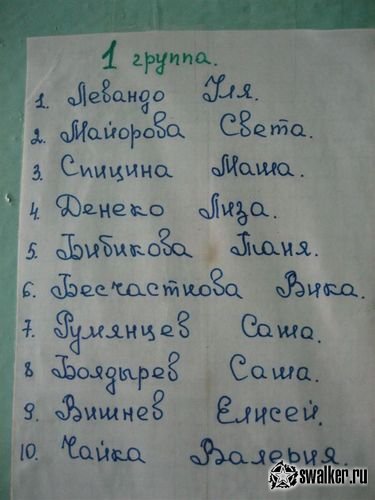 1 группа.
1. Левандо Иля.
2. Майорова Света.
3. Спицина Маша.
4. Денеко Лиза.
5. Бибикова Таня.
6. Бесчастнова Вика.
7. Румянцев Саша.
8 Боядырев Саша.
9. Вишнев Елисей.
10. Чайка Валерия.
swalker.ru